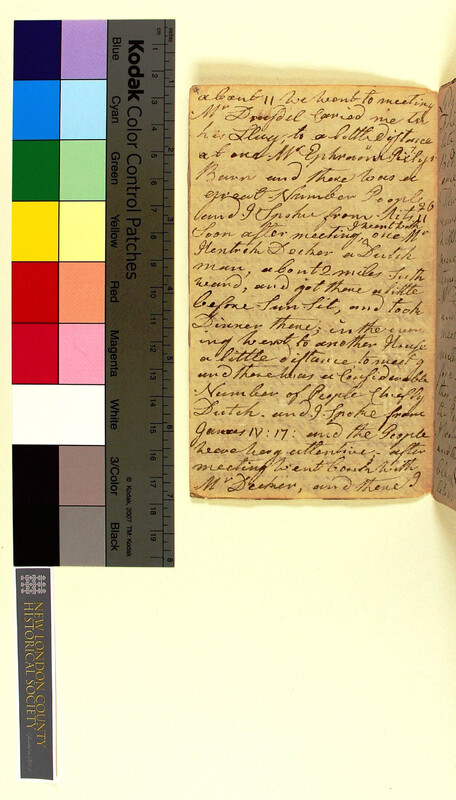 about 11 we went to meeting
Mr Drausdel Caried me in
his Slay, to a little distance
at one Mr Ephraim
Barn and there was a
great Number People
and I Spoke from
Soon after meeting, I went with one Mr
Hentrick Decker a Dutch
man, about 2 miles further
and got there a little
before Sun Sit, and took
Dinner there; in the even
ing Went to another House
a little distance to meet g
and there was a Considerable
Number of People Chiefly
Dutch. and I Spoke from
James IV: 17: and the People
were very attentive - after
meeting Went back with
Mr Decker, and there I
Kodak Color Control Patches
Blue
Cyan
Green
Yellow
Red
Magenta
White
3/Color
Black
© Kodak, 2007 TM: Kodak
cm 1 2 3 4 5 6 7 8 9 10 11 12 13 14 15 16 17 18 19
NEW LONDON COUNTY
HISTORICAL SOCIETY